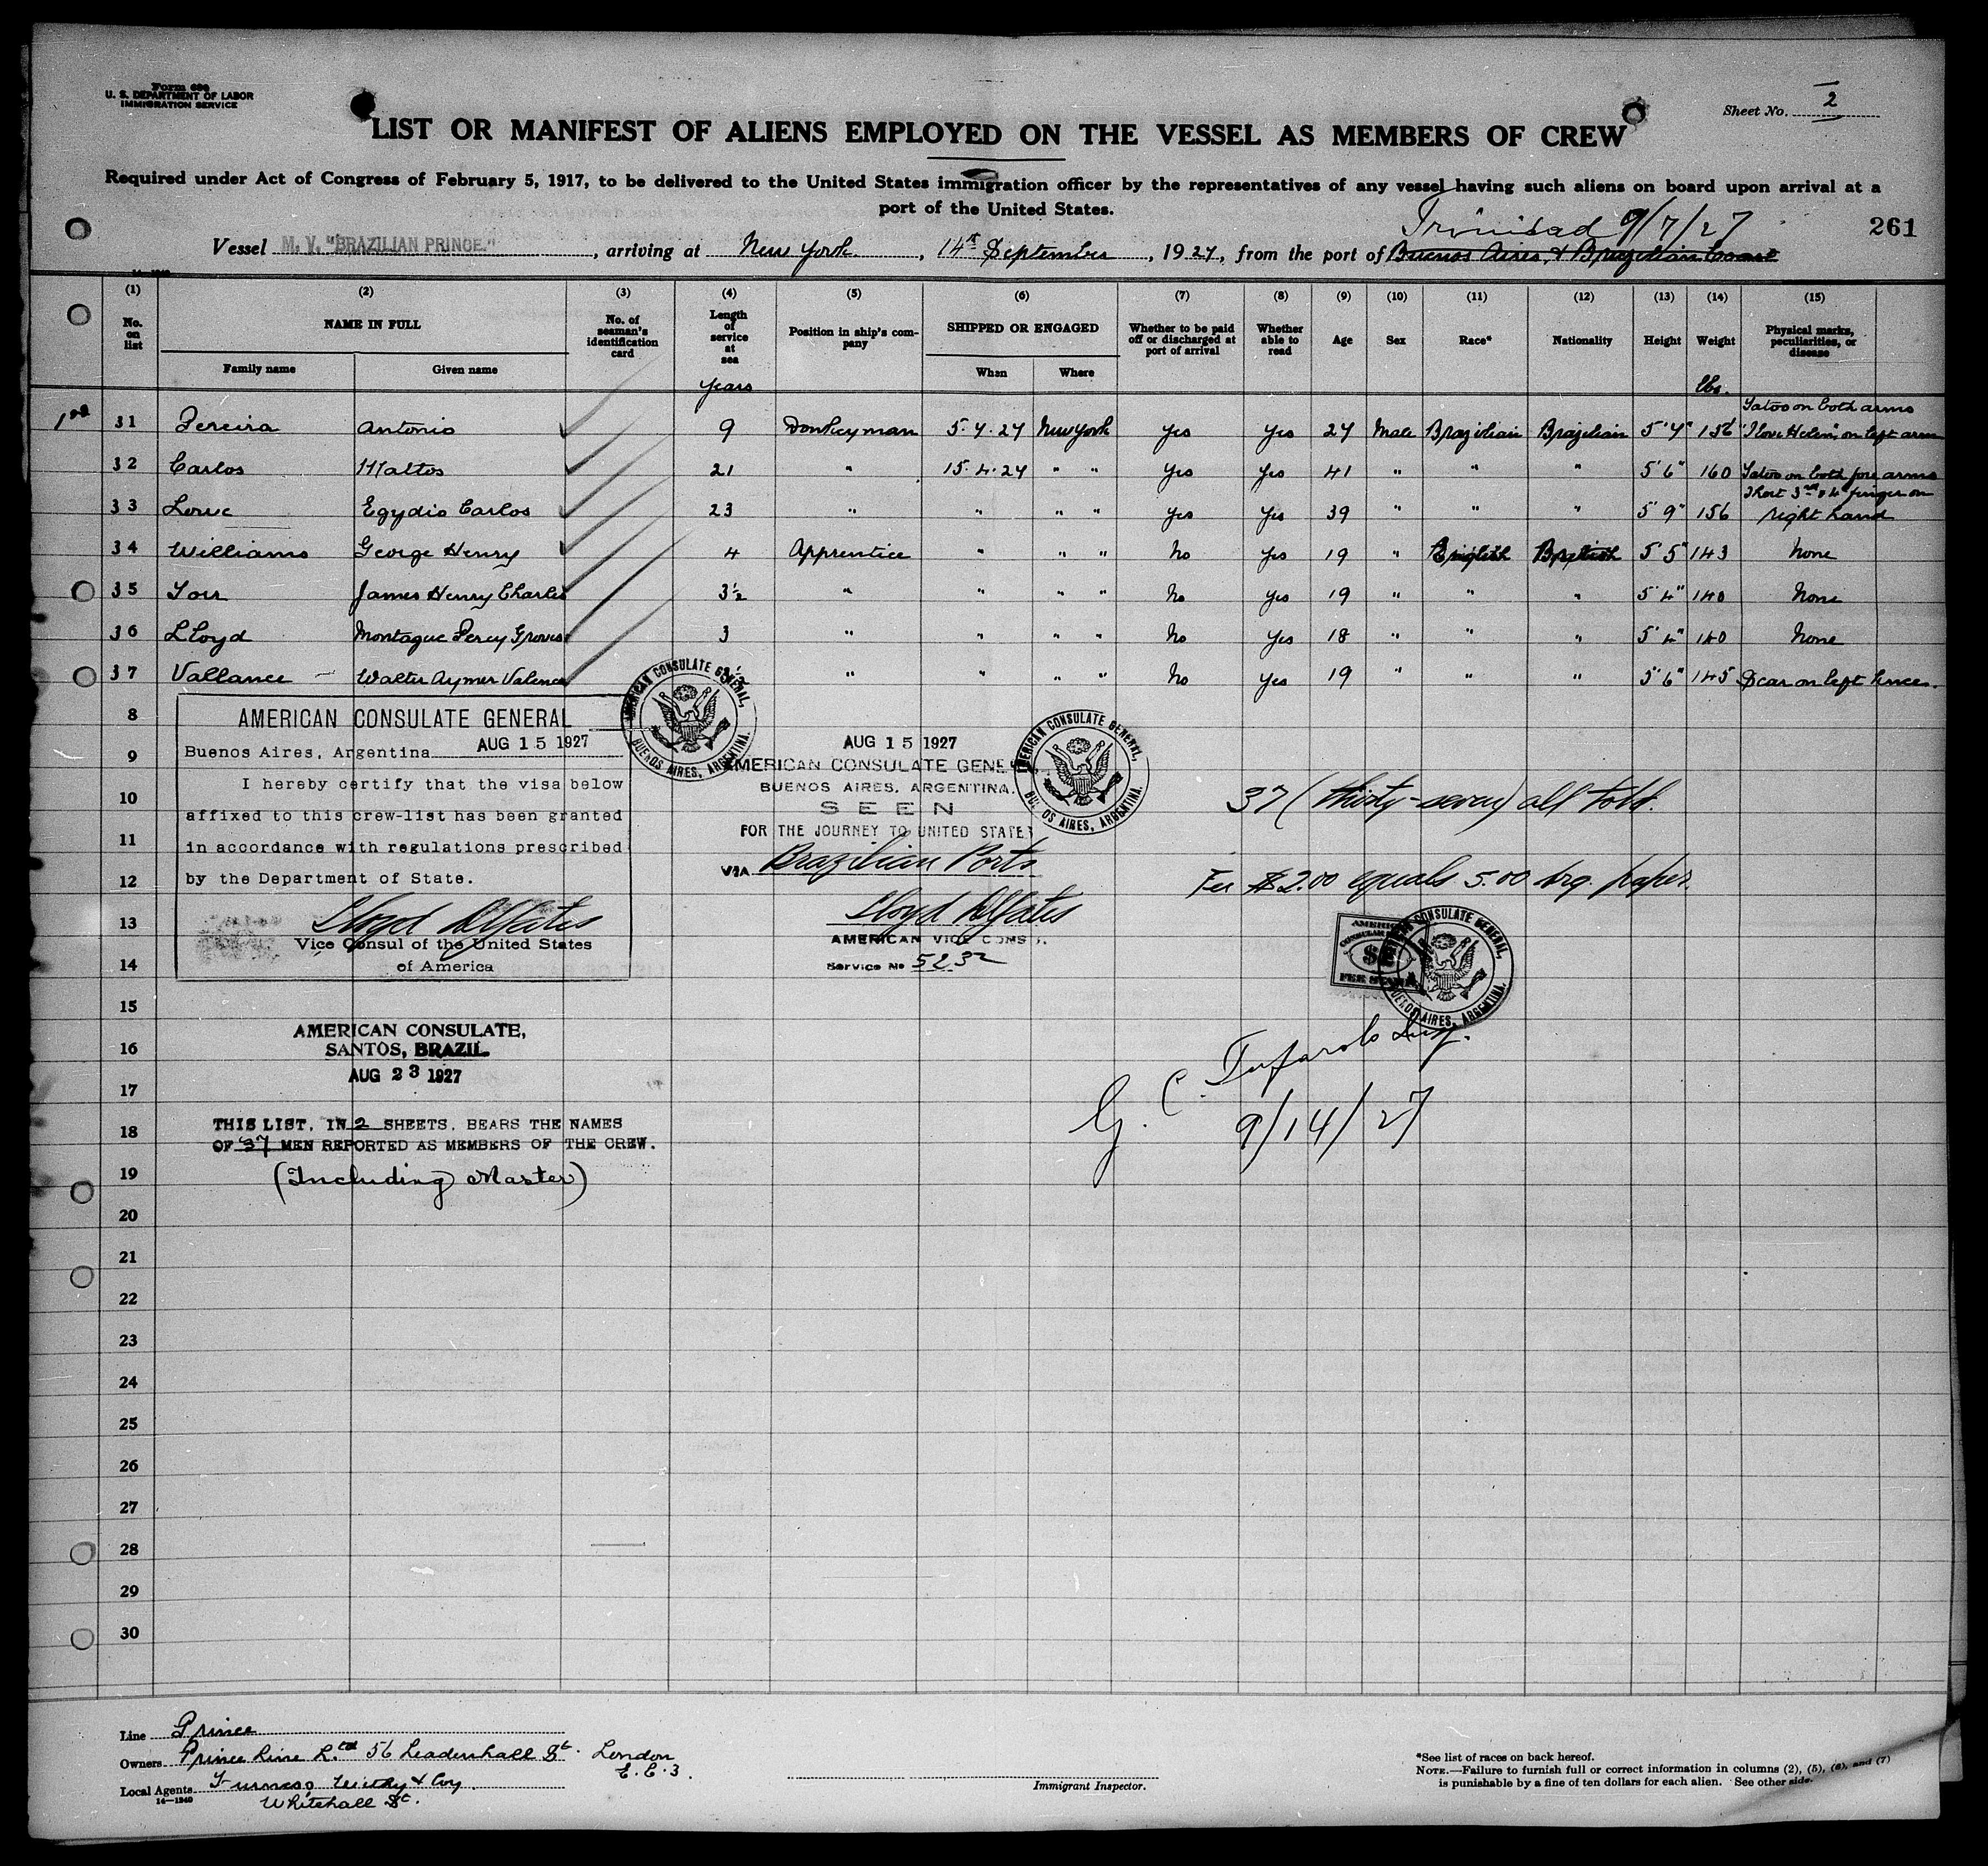 Form 680
U. S. DEPARTMENT OF LABOR
IMMIGRATION SERVICE
Sheet No. 2
LIST OR MANIFEST OF ALIENS EMPLOYED ON THE VESSEL AS MEMBERS OF CREW
Required under Act of Congress of February 5, 1917, to be delivered to the United States immigration officer by the representatives of any vessel having such aliens on board upon arrival at a
port of the United States.
Trinidad 9/7/27
261
Vessel M. V. "BRAZILIAN PRINCE.", arriving at New York, 14th September, 1927, from the port of Buenos Aires & Brazilian Coast
(1) (2) (3) (4) (5) (6) (7) (8) (9) (10) (11) (12) (13) (14) (15)
No. on list NAME IN FULL No. of seaman's identification card Length of service at sea Position in ship's company SHIPPED OR ENGAGED Whether to be paid off or discharged at port of arrival Whether able to read Age Sex Race* Nationality Height Weight Physical marks, peculiarities, or disease
Family name Given name When Where
Years lbs.
Tatoo on both arms
31 Pereira Antonio 9 Donkeyman 5.7.27 New York Yes Yes 27 Male Brazilian Brazilian 5'7" 156 "I love Helen" on left arm
32 Carlos Mattos 21 " 15.4.27 " " Yes Yes 41 " " " 5'6" 160 Tatoo on both fore arms
Short 3rd & 4th finger on
33 Egydio Carlos 23 " " " " Yes Yes 39 " " " 5'9" 156 right hand
34 Williams George Henry 4 Apprentice " " " No Yes 19 " English British 5'5" 143 None
35 James Henry Charles 3½ " " " " No Yes 19 " " " 5'4" 140 None
36 Lloyd Montague Percy 3 " " " " No Yes 18 " " " 5'4" 140 None
37 Vallance Walter Aymer " " " " No Yes 19 " " " 5'6" 145 Scar on left knee.
8
AMERICAN CONSULATE GENERAL
Buenos Aires, Argentina AUG 15 1927
I hereby certify that the visa below
affixed to this crew-list has been granted
in accordance with regulations prescribed
by the Department of State.
Vice Consul of the United States
of America
AMERICAN CONSULATE GENERAL, BUENOS AIRES, ARGENTINA.
AUG 15 1927
AMERICAN CONSULATE GENE
BUENOS AIRES, ARGENTINA.
SEEN
FOR THE JOURNEY TO UNITED STATES
VIA Brazilian Ports
AMERICAN VICE CONSUL
Service No 5232
AMERICAN CONSULATE GENERAL, BUENOS AIRES, ARGENTINA.
37 (thirty-seven) all told.
Fee $2.00 equals 5.00 arg. paper.
AMERICAN
FEE STAMP
AMERICAN CONSULATE GENERAL, BUENOS AIRES, ARGENTINA.
9
10
11
12
13
14
15
AMERICAN CONSULATE,
16
SANTOS, BRAZIL.
AUG 23 1927
17
9/14/27
THIS LIST, IN 2 SHEETS, BEARS THE NAMES
18
OF 37 MEN REPORTED AS MEMBERS OF THE CREW.
19
(Including Master)
20
21
22
23
24
25
26
27
28
29
30
Line Prince
Owners Prince Line Ltd 56 Leadenhall St. London
E.C.3.
Local Agents Furness Withy & Coy.
14—1240
Whitehall St.
Immigrant Inspector.
*See list of races on back hereof.
NOTE.—Failure to furnish full or correct information in columns (2), (5), (6), and (7)
is punishable by a fine of ten dollars for each alien. See other side.